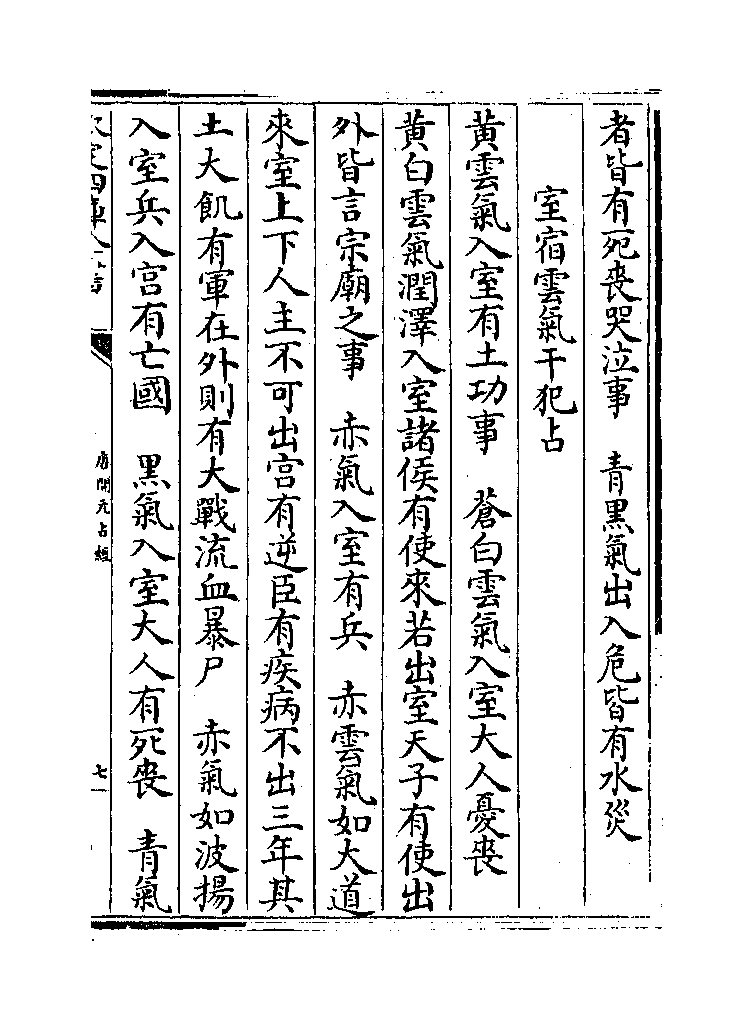 者皆有死喪哭泣事　青黒氣出入危皆有水災
室宿雲氣干犯占
黄雲氣入室有土功事　蒼白雲氣入室大人憂喪
黄白雲氣潤澤入室諸侯有使來若出室天子有使出
外皆言宗廟之事　赤氣入室有兵　赤雲氣如大道
來室上下人主不可出宫有逆臣有疾病不出三年其
土大飢有軍在外則有大戰流血暴尸　赤氣如波揚
入室兵入宫有亡國　黒氣入室大人有死喪　青氣
欽定四庫全書
唐開元占經
七